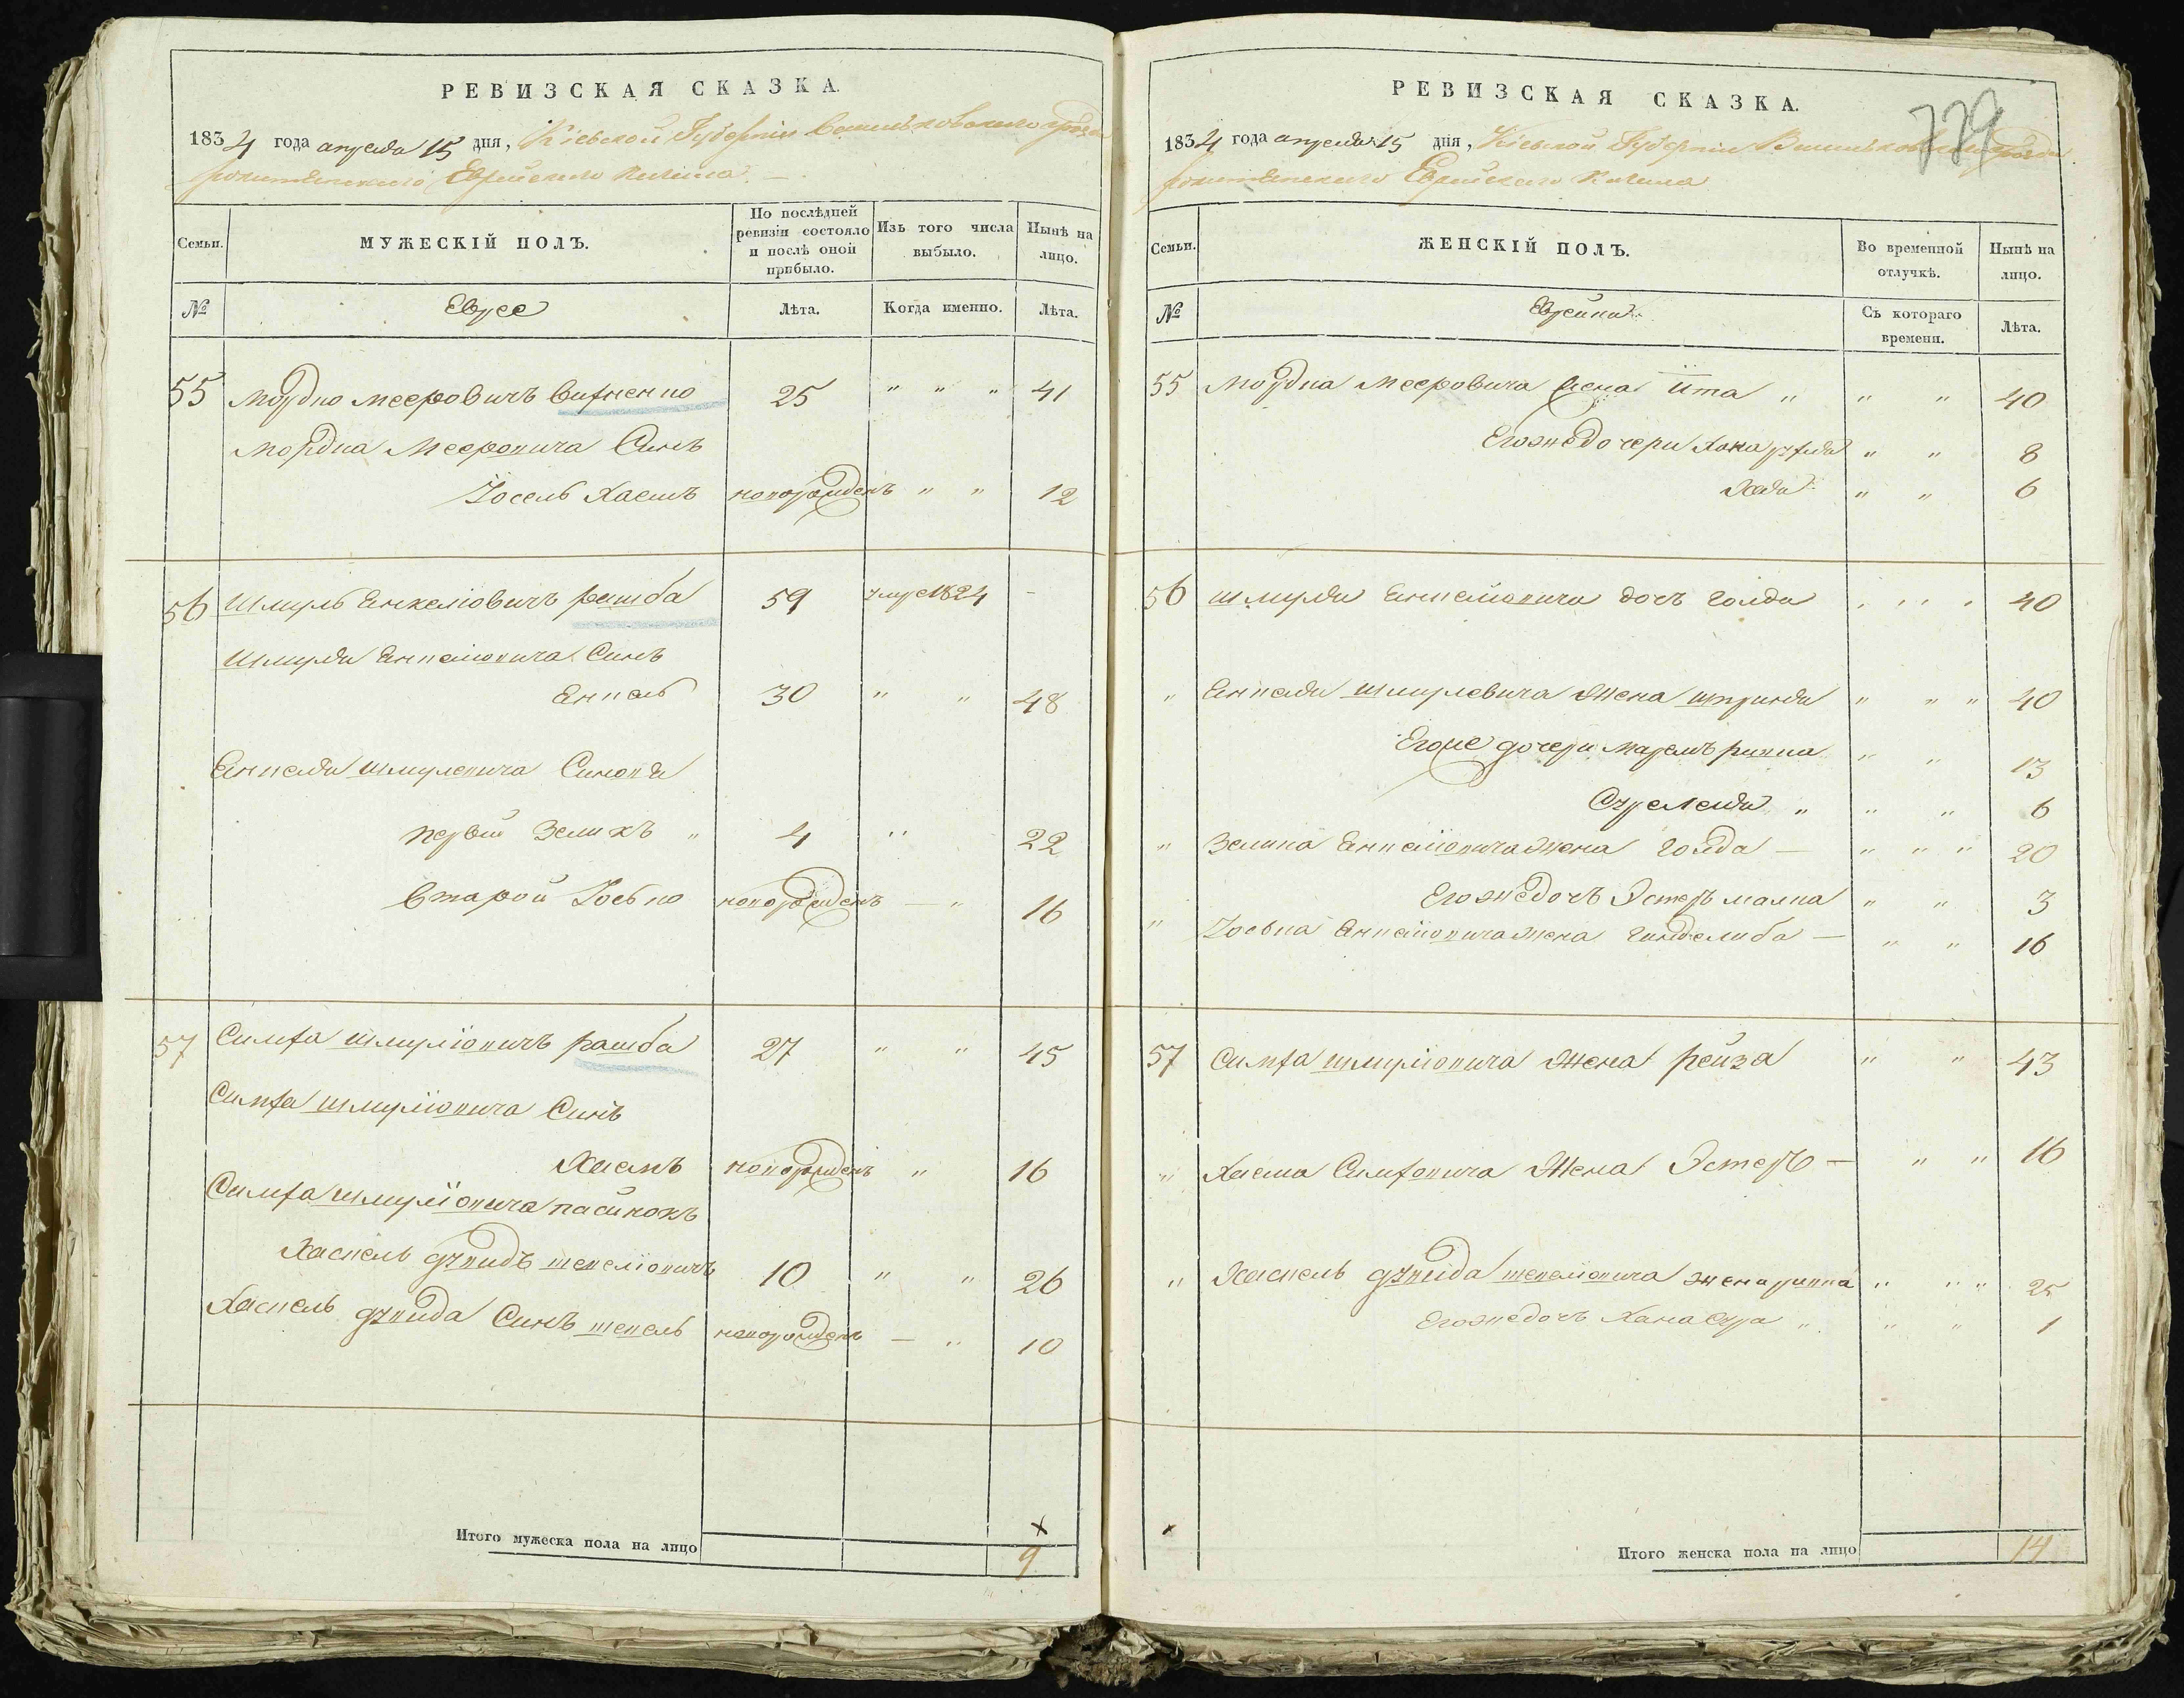 РЕВИЗСКАЯ СКАЗКА.
1834 года апреля 15 дня, Кіевской Губерніи Васильковского уѣзда
Еврейского Кагала
Семьи.
МУЖЕСКІЙ ПОЛЪ.
По послѣдней ревизіи состояло и послѣ оной прибыло.
Изъ того числа выбыло.
Нынѣ на лицо.
№
Евреи
Лѣта.
Когда именно.
Лѣта.
55 Мордко Мееровичъ 25 " " " 41
Мордка Мееровича Синъ
Іосель Хаемъ новорожденъ " " 12
56 Шмуль Енкеліовичъ рашба 59 умре 1824 -
Шмуля Енкеліовича Синъ
Енкель 30 " " 48
Енкеля Шмулевича Синовя
первій Зеликъ " 4 " 22
Вторій Іосько новорожденъ — " 16
57 Симха шмуліовичъ рашба 27 " " 45
Симха шмуліовича Синъ
Хаемъ новорожденъ " 16
Симха шмуліовича пасинокъ
Хаскель 10 " " 26
Хаскель Синъ новорожденъ — " 10
Итого мужеска пола на лицо
х
9
РЕВИЗСКАЯ СКАЗКА.
779
1834 года апреля 15 дня, Кіевской Губерніи Васильковского уѣзда
Еврейского Кагала
Семьи.
ЖЕНСКІЙ ПОЛЪ.
Во временной отлучкѣ.
Нынѣ на лицо.
№
Еврейки
Съ котораго времени.
Лѣта.
55 Мордка Мееровича жена Ита " " " 40
Егоже дочери Хана " " 8
Хая " " 6
56 шмуля Енкеліовича дочъ голда " " " " 40
" Енкеля шмулевича Жена шпринця " " " 40
Егоже дочери Маремъ ривка " " 13
" " " 6
" Зелика Енкеліовича жена голда — " " " 20
Егоже дочъ Эстеръ малка " " 3
" Іоська Енкеліовича жена — " " 16
57 Симха шмуліовича Жена рейза " " 43
" Хаема Симховича Жена Эстеръ — " " 16
" Хаскель жена ривка " " " 25
Егоже дочъ Хана Сура " " " 1
х
Итого женска пола на лицо
14